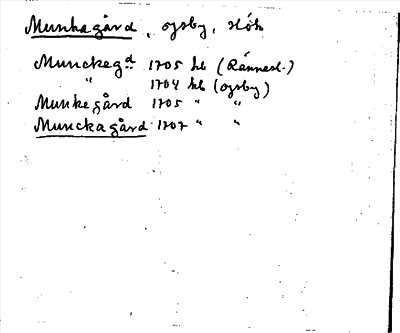 Munkagård, Ogsby, Höks
Munckegd 1705 kb (Rännesl.)
" 1704 kb (Ogsby)
Munkegård 1705 " "
Munckagård 1707 " "